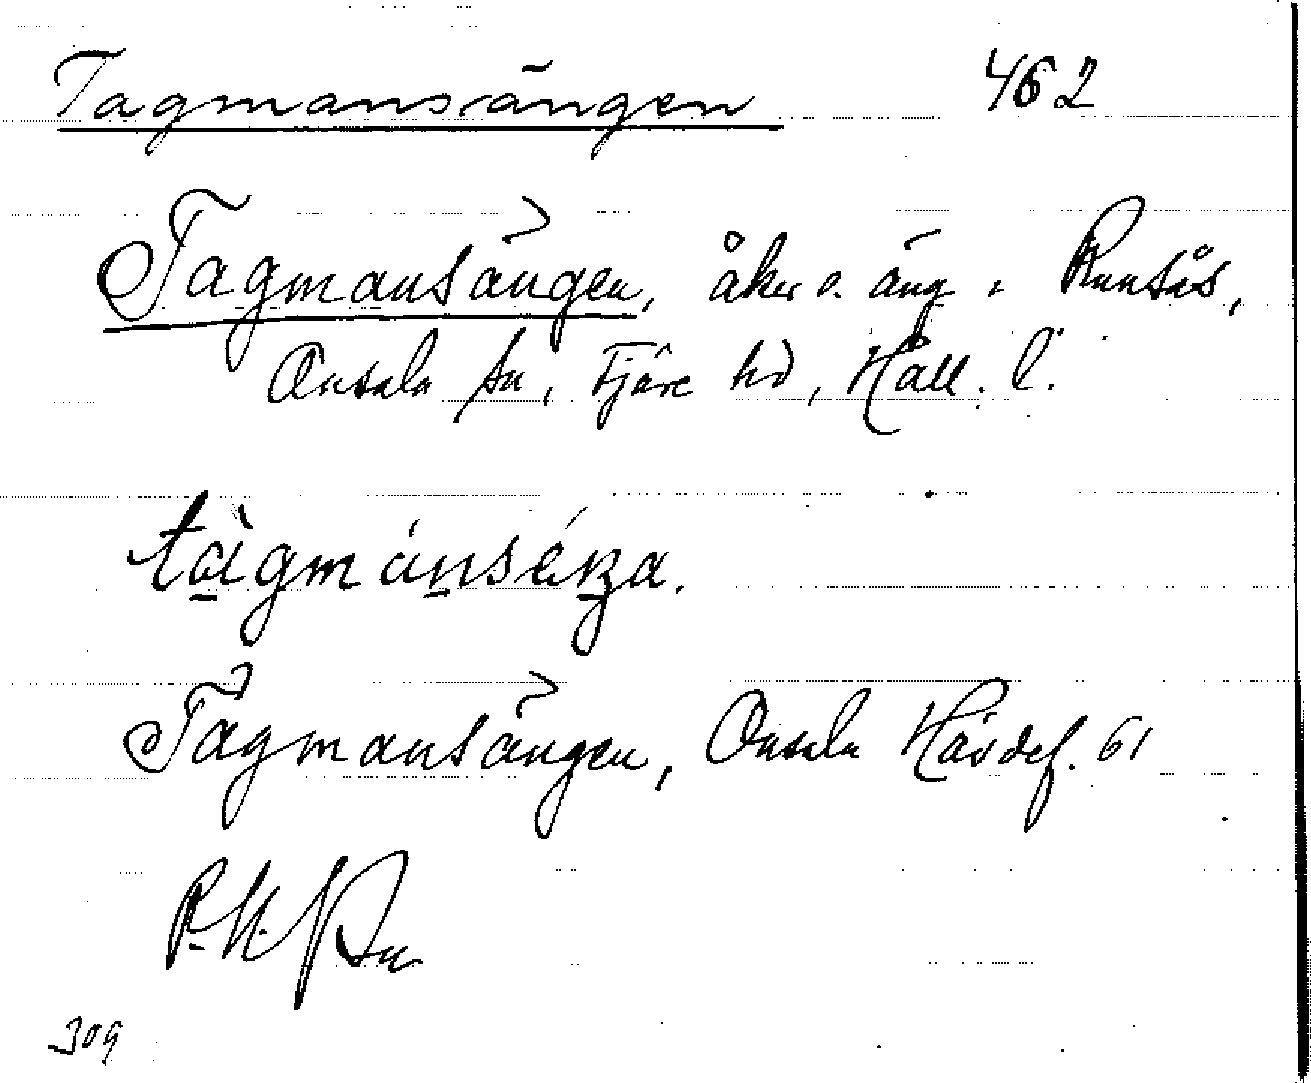 Tagmansängen 462
Tagmansängen, åker o. äng i Runsås,
Onsala sn, Fjäre hd, Hall. l.
tàgmánséŋa.
Tagmansängen, Onsala Hävdef. 61
309